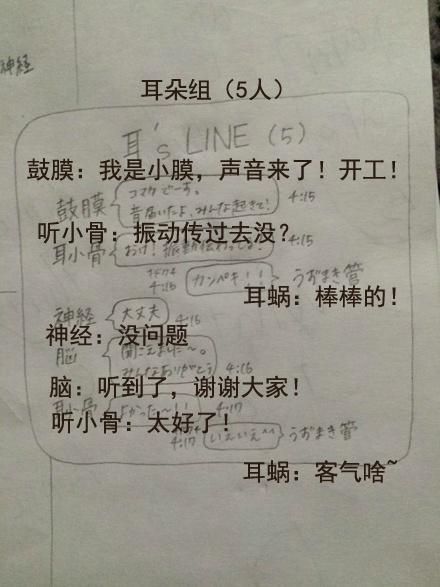 神経
耳朵组（5人）
耳's LINE (5)
鼓膜：我是小膜，声音来了！开工！
コマクでーす。
鼓膜 音届いたよ、みんな起きて！ 4:15
听小骨：振动传过去没？
耳小骨 4:15
4:15 カンペキ！！ うずまき管
耳蜗：棒棒的！
神経 大丈夫 4:16
神经：没问题
脳 聞こえました〜。
みんなありがとう 4:16
脑：听到了，谢谢大家！
耳小骨 よかった〜！！ 4:17
听小骨：太好了！
4:17 いえいえ^^ うずまき管
耳蜗：客气啥~